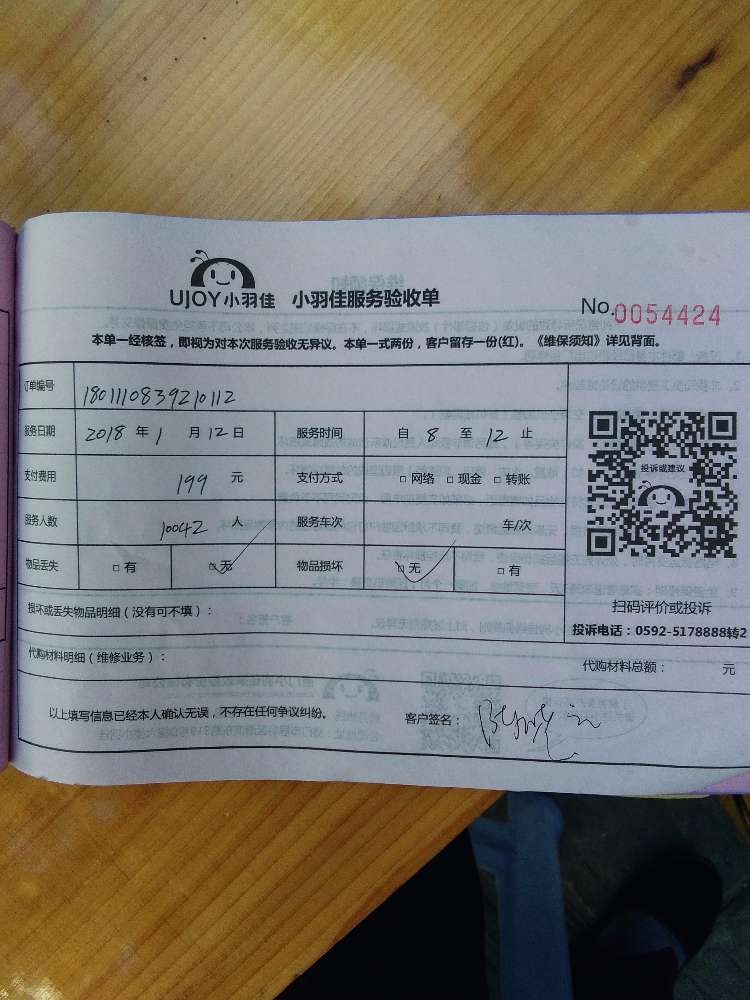 UJOY小羽佳 小羽佳服务验收单
No.0054424
本单一经核签，即视为对本次服务验收无异议。本单一式两份，客户留存一份(红)。《维保须知》详见背面。
订单编号 1801110839210112
服务日期 2018 年 1 月 12 日 服务时间 自 8 至 12 止
支付费用 199 元 支付方式 □ 网络 □ 现金 □ 转账
服务人数 10042 人 服务车次 车/次
物品丢失 □ 有 □ 无 物品损坏 □ 无 □ 有
投诉或建议
扫码评价或投诉
投诉电话：0592-5178888转2
损坏或丢失物品明细（没有可不填）：
代购材料明细（维修业务）： 代购材料总额： 元
以上填写信息已经本人确认无误，不存在任何争议纠纷。 客户签名：